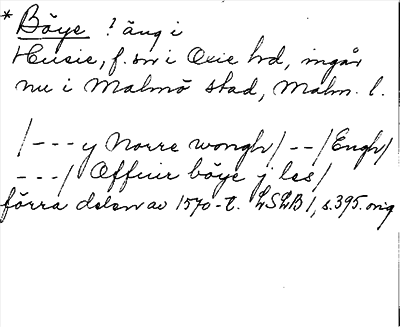 * Böye ! äng i
Husie, f. sn i Oxie hd, ingår
nu i Malmö stad, Malm. l.
/--- y Norre wongh/--/Engh/
---/ Offuir böye j las/
förra delen av 1570-t. LSLB 1, s. 395. orig